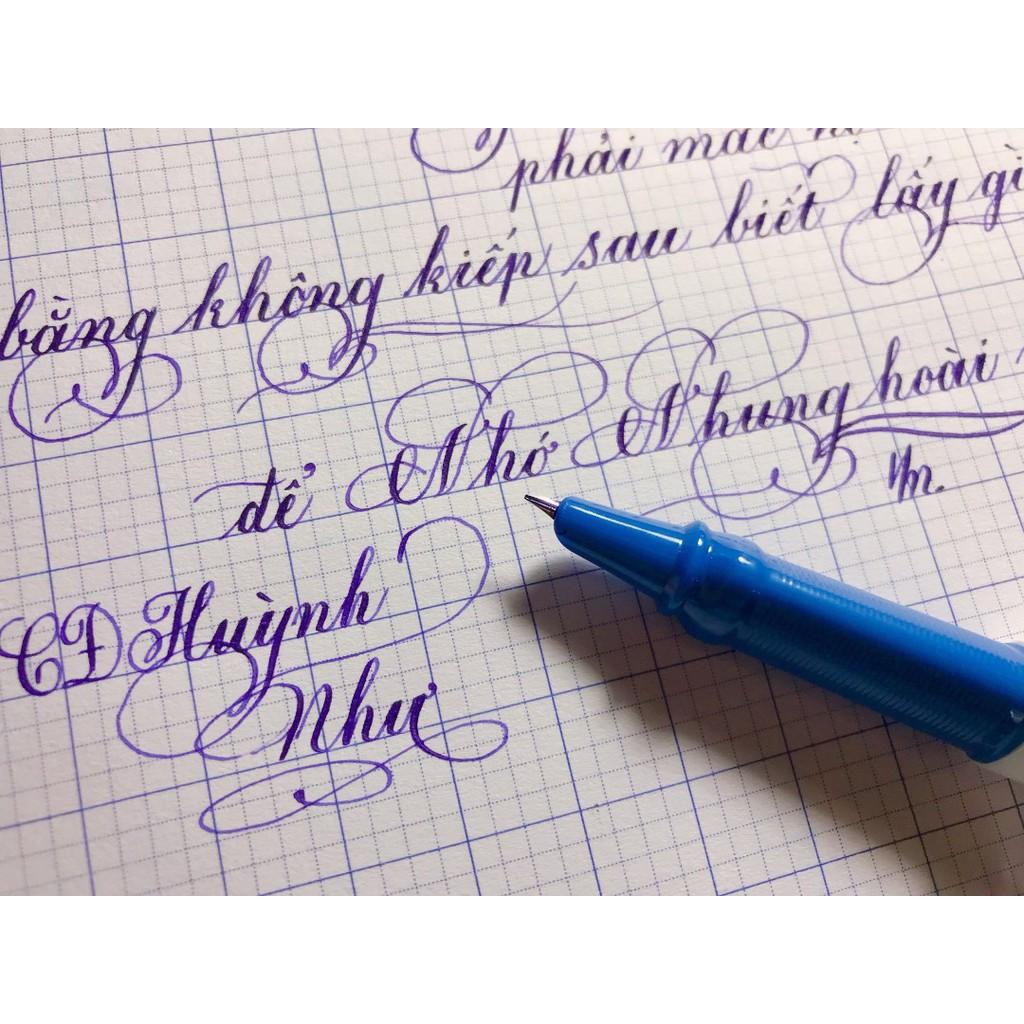 phải mắc
bằng không kiếp sau biết lấy gì
để Nhớ Nhung hoài
CĐ Huỳnh
Như